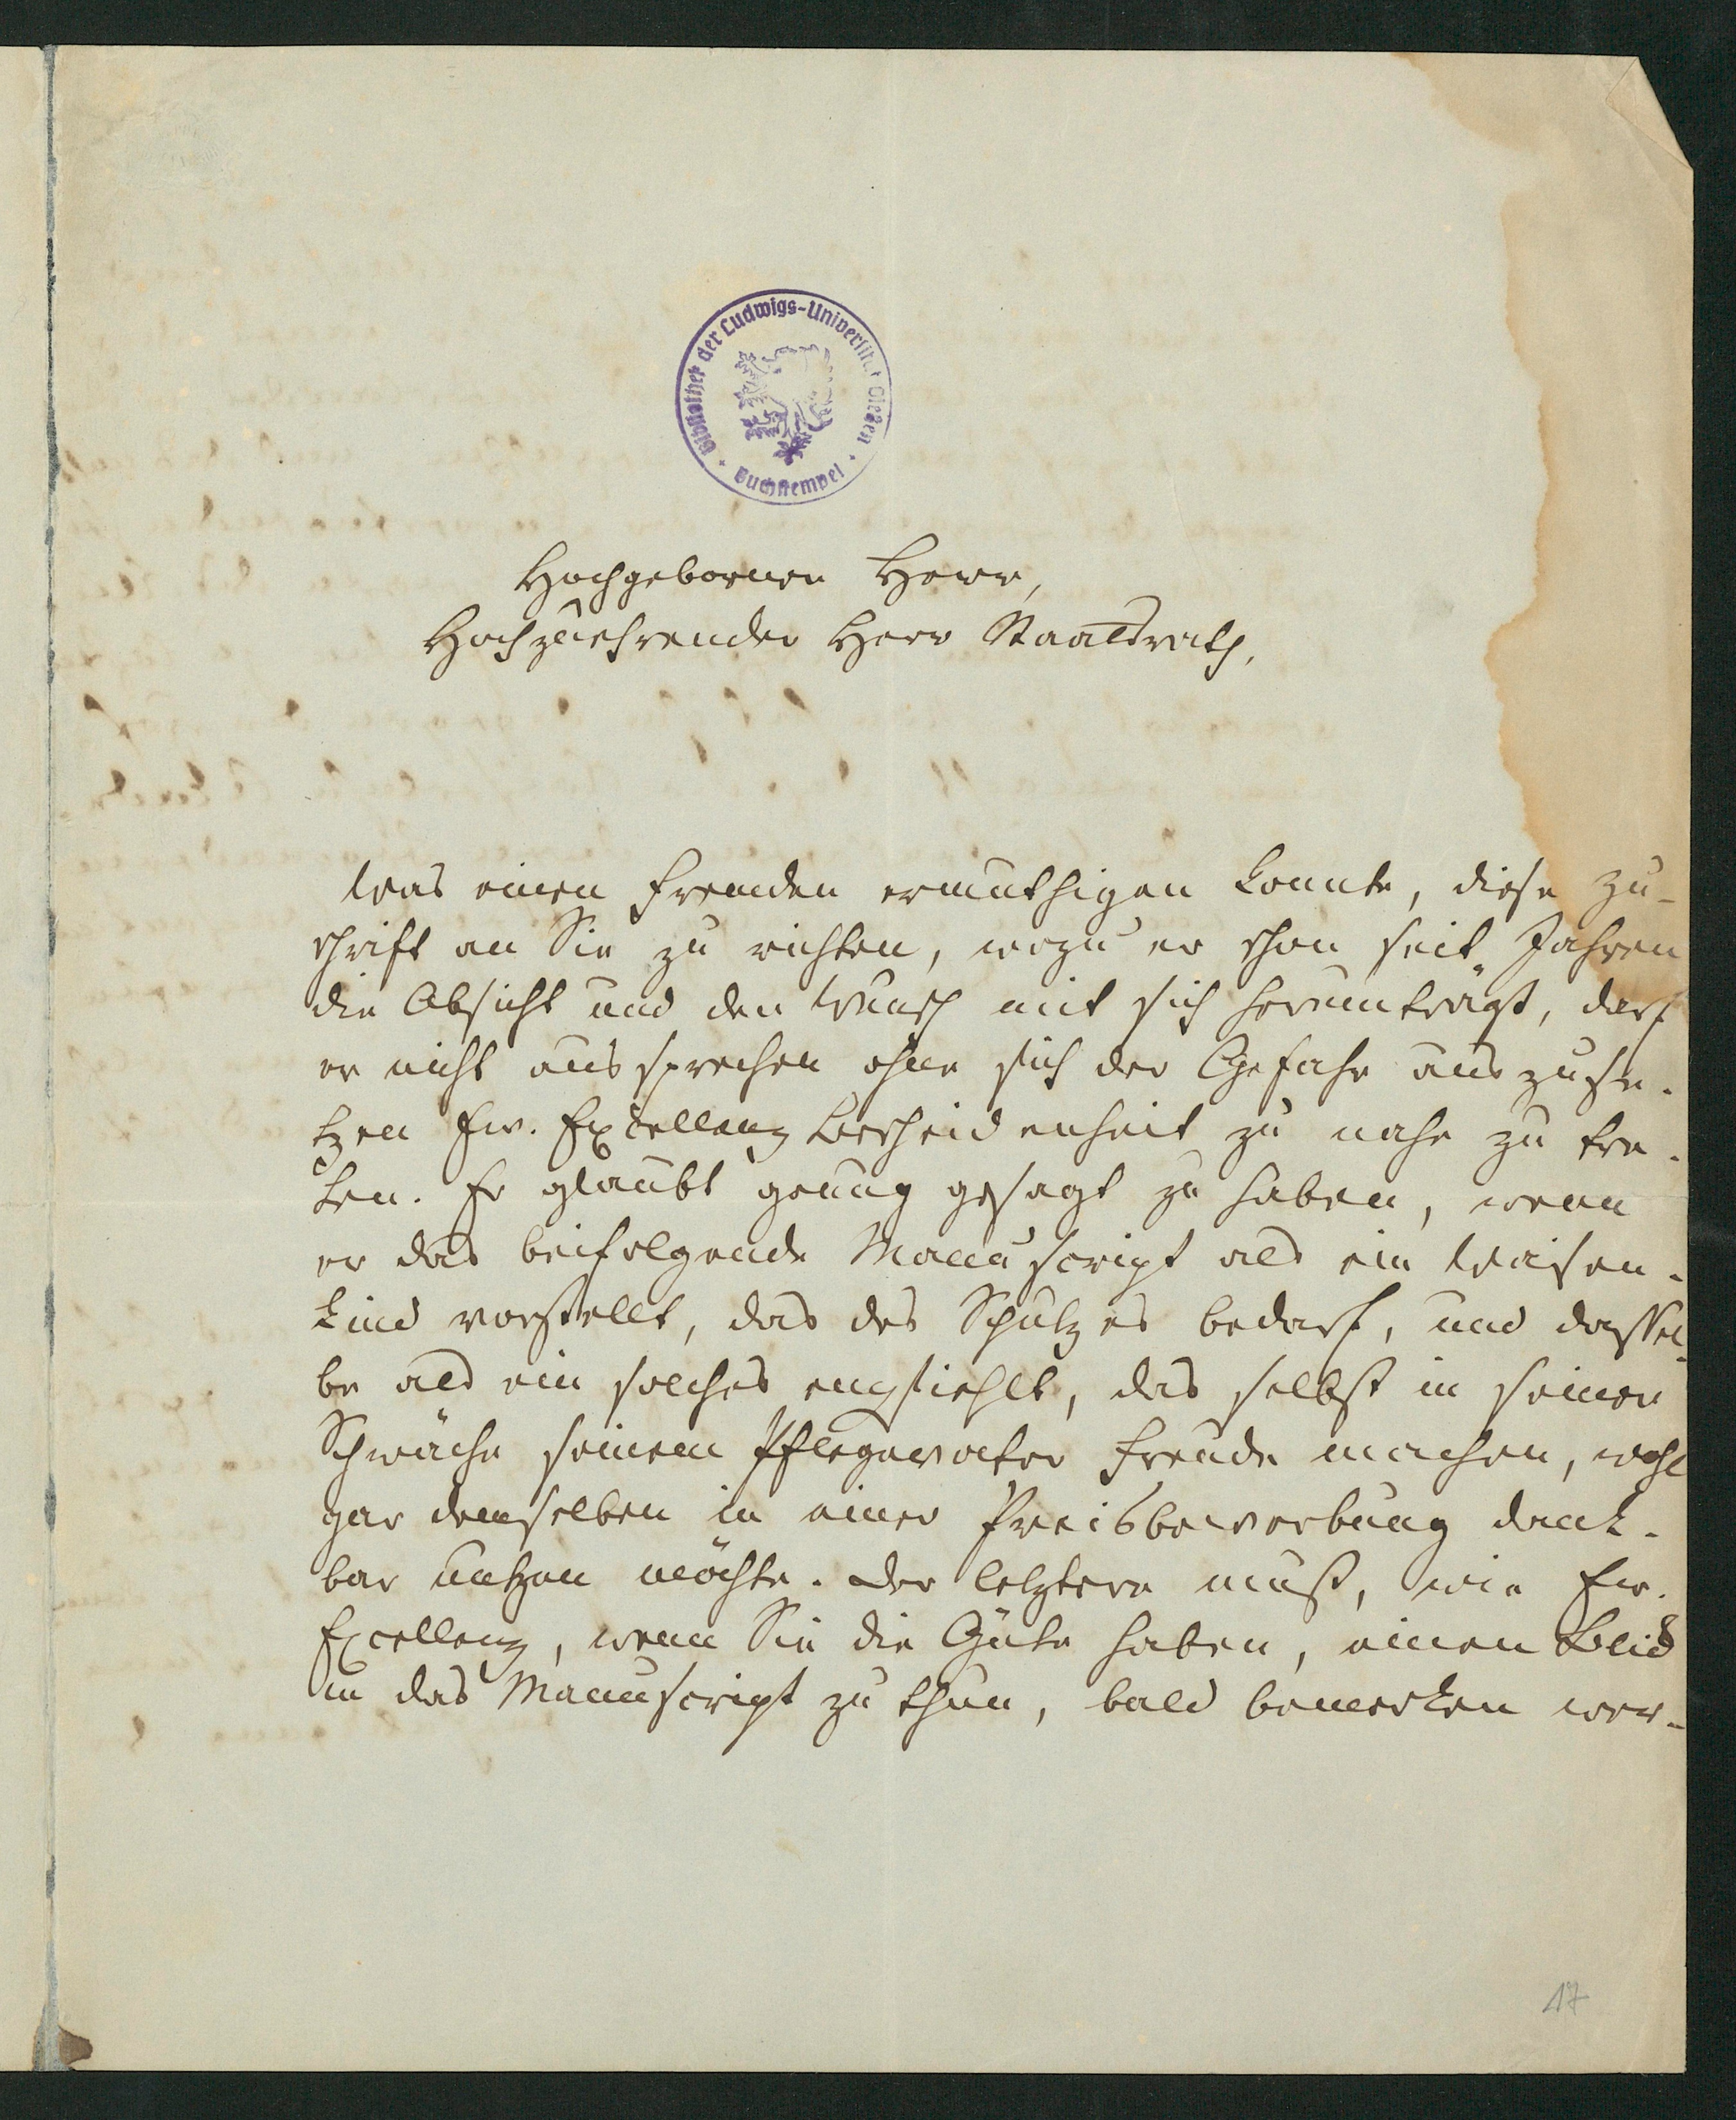 Bibliothek der Ludwigs-Universität Gießen
Buchstempel
Hochgeborner Herr,
Hochzuehrender Herr Staatsrath,
Was einen Fremden ermuthigen konnte, diese Zu-
schrift an Sie zu richten, wozu er schon seit Jahren
die Absicht und den Wunsch mit sich herumträgt, darf
er nicht aussprechen ohne sich der Gefahr auszuse-
tzen Ew. Excellenz Bescheidenheit zu nahe zu tre-
ten. Er glaubt genug gesagt zu haben, wenn
er das beifolgende Manuscript als ein Waisen-
kind vorstellt, das des Schutzes bedarf, und dassel-
be als ein solches empfiehlt, das selbst in seiner
Schwäche seinem Pflegevater Freude machen, wohl
gar demselben in einer Preisbewerbung dank-
bar nutzen möchte. Der letztere muß, wie Ew.
Excellenz, wenn Sie die Güte haben, einen Blick
in das Manuscript zu thun, bald bemerken wer-
17